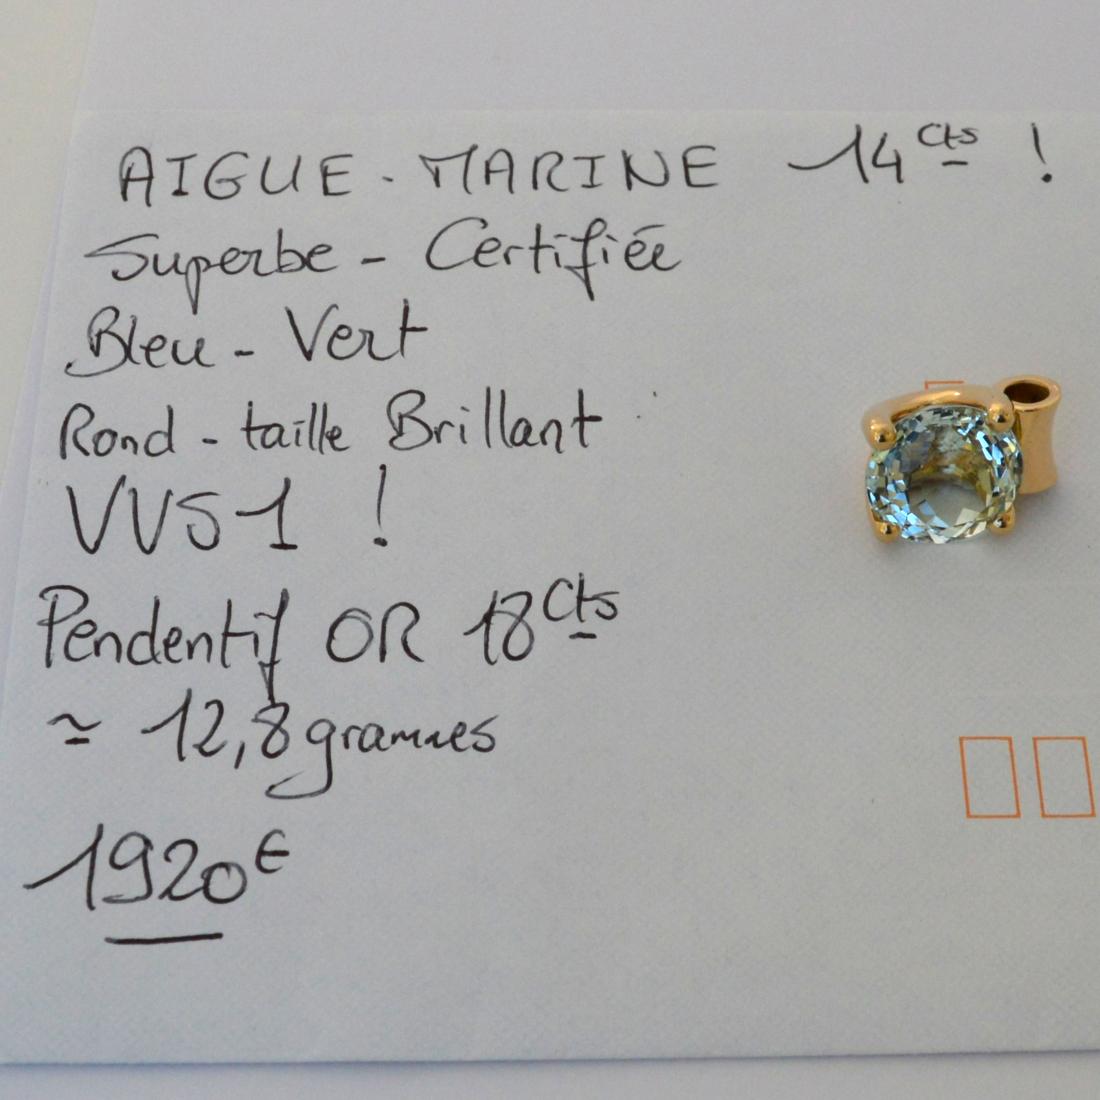 AIGUE-MARINE 14 cts !
Superbe - Certifiée
Bleu - Vert
Rond - taille Brillant
VVS1 !
Pendentif OR 18 cts
≃ 12,8 grammes
1920 €